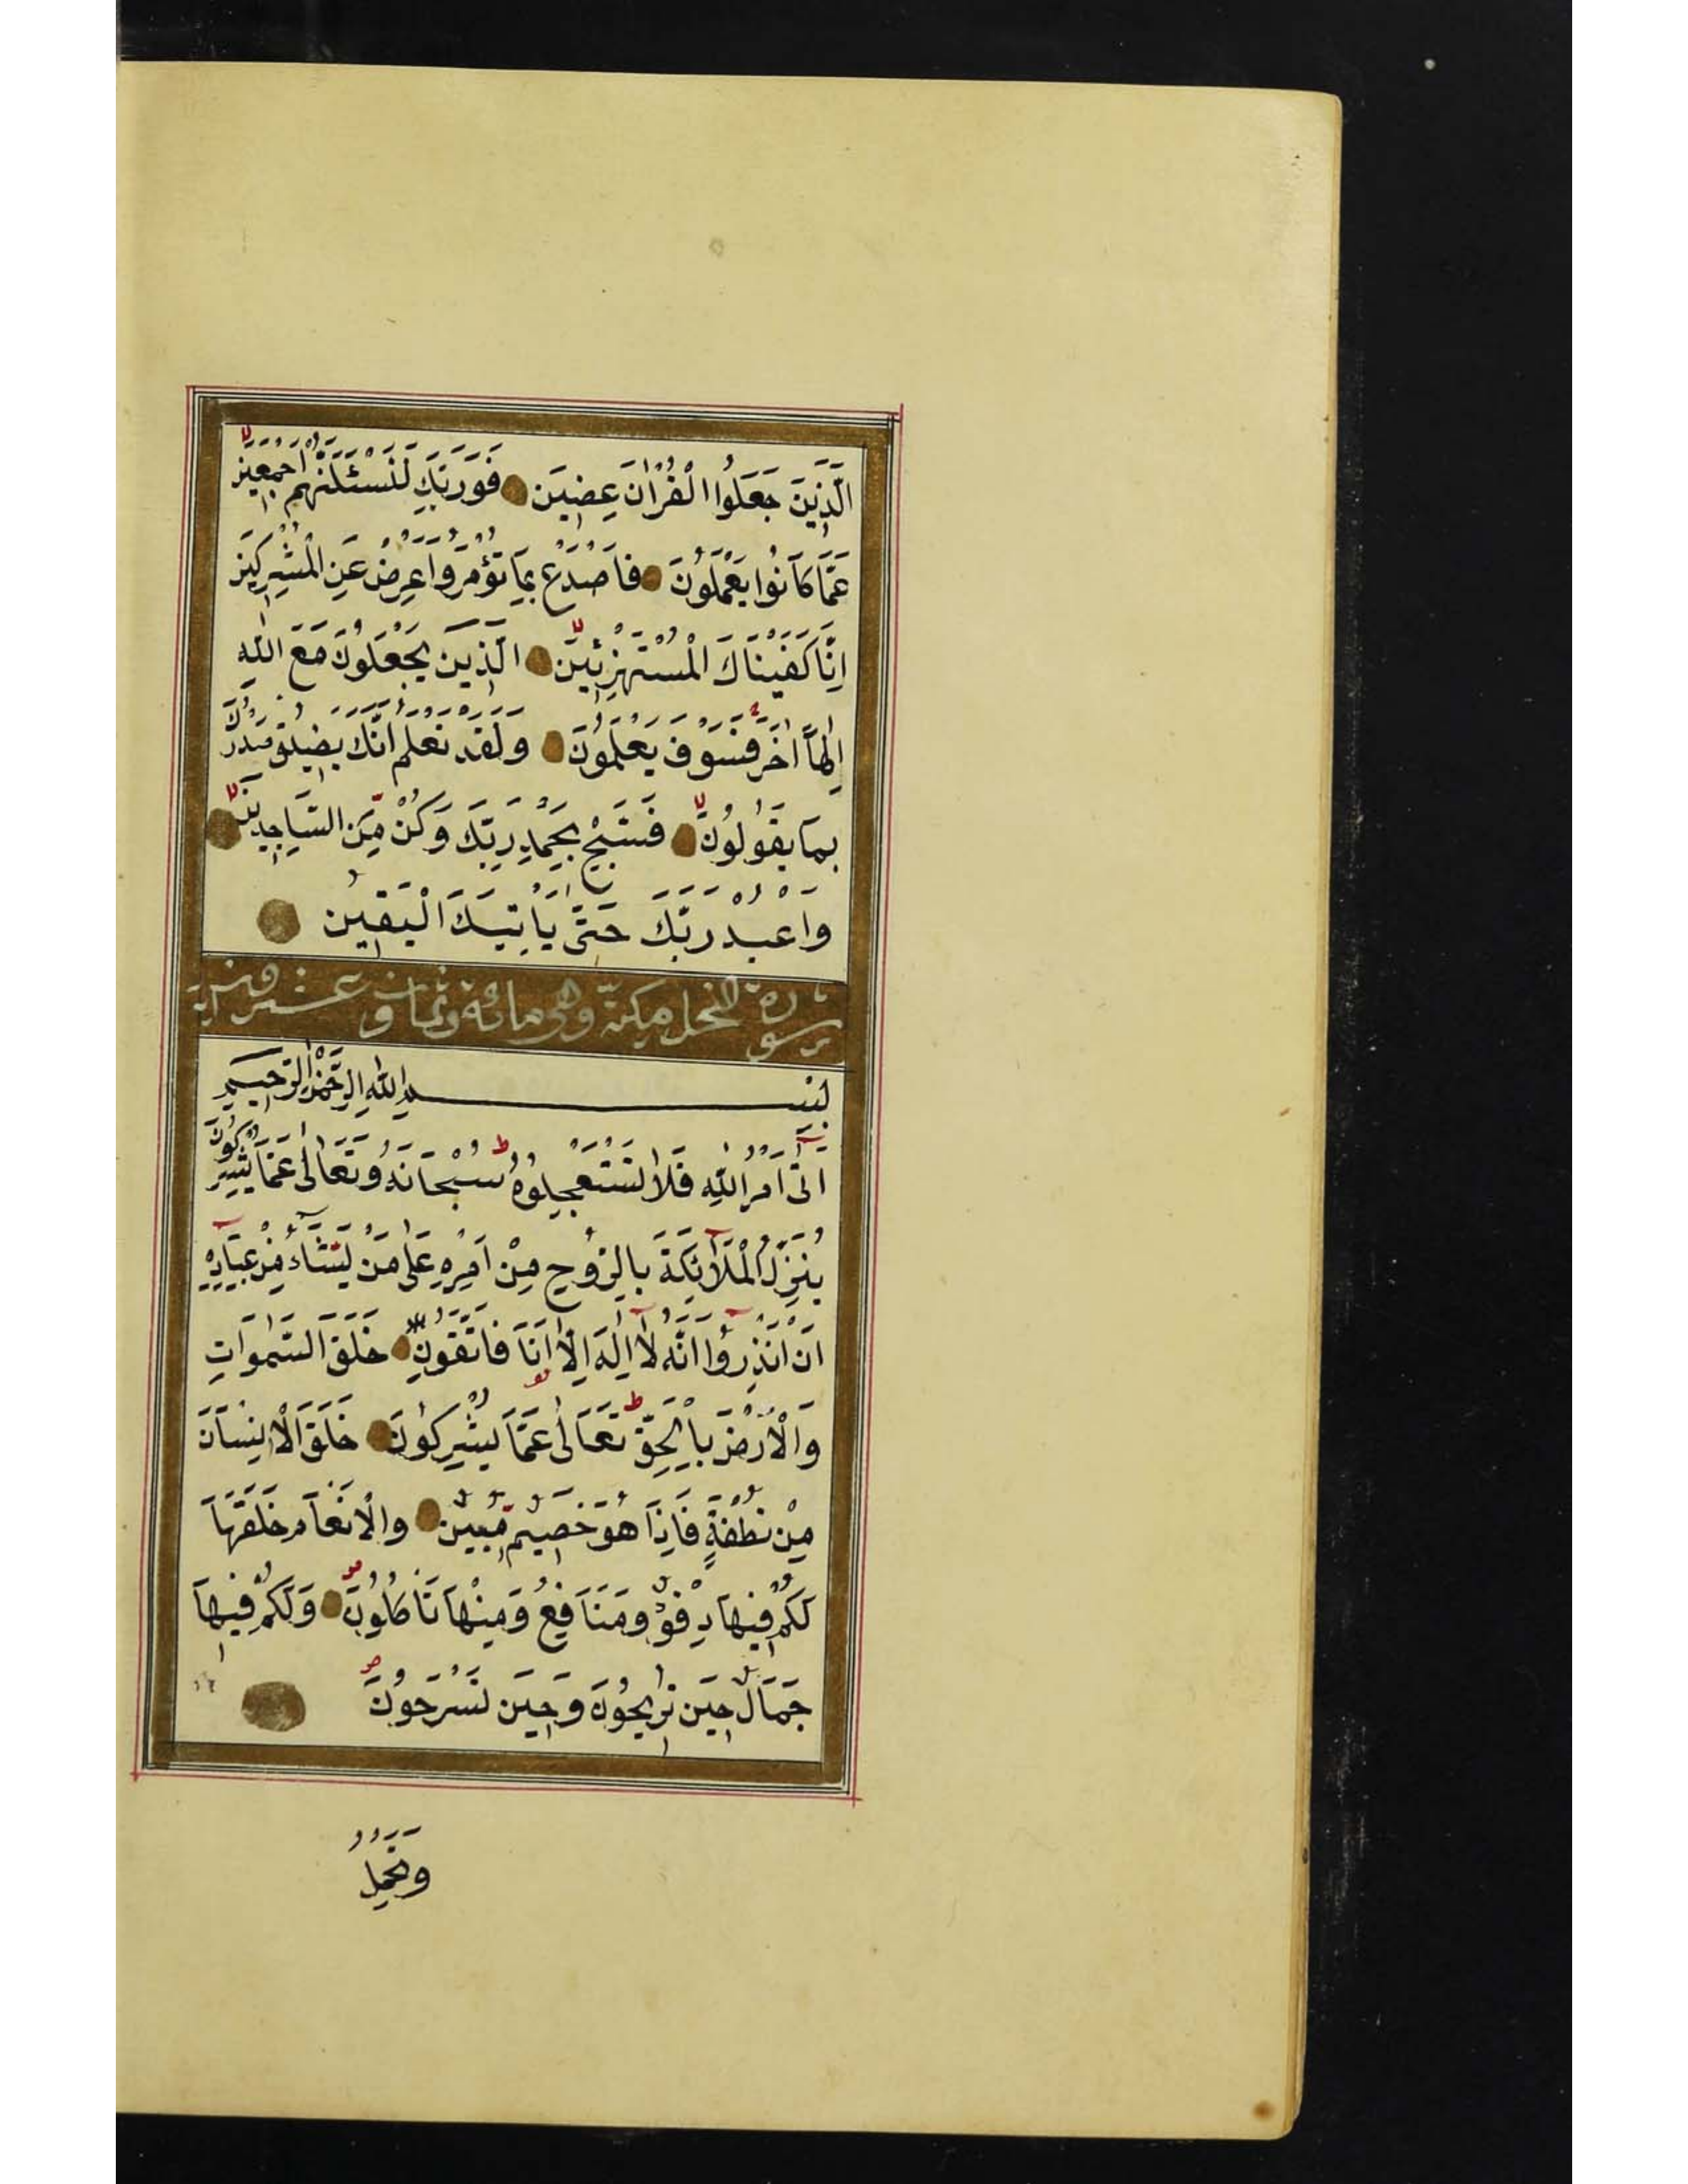 الَّذِينَ جَعَلُوا الْقُرْاٰنَ عِضِينَ فَوَرَبِّكَ لَنَسْئَلَنَّهُمْ اَجْمَعِينَ
عَمَّا كَانُوا يَعْمَلُونَ فَاصْدَعْ بِمَا تُؤْمَرُ وَاَعْرِضْ عَنِ الْمُشْرِكِينَ
اِنَّا كَفَيْنَاكَ الْمُسْتَهْزِئِينَ الَّذِينَ يَجْعَلُونَ مَعَ اللّٰهِ
اِلٰهًا اٰخَرَ فَسَوْفَ يَعْلَمُونَ وَلَقَدْ نَعْلَمُ اَنَّكَ يَضِيقُ صَدْرُكَ
بِمَا يَقُولُونَ فَسَبِّحْ بِحَمْدِ رَبِّكَ وَكُنْ مِّنَ السَّاجِدِينَ
وَاعْبُدْ رَبَّكَ حَتّٰى يَأْتِيَكَ الْيَقِينُ
سورة النحل مكية وهى مائة وثمان وعشرون آية
بِسْمِ اللّٰهِ الرَّحْمٰنِ الرَّحِيمِ
اَتٰى اَمْرُ اللّٰهِ فَلَا تَسْتَعْجِلُوهُ سُبْحَانَهُ وَتَعَالٰى عَمَّا يُشْرِكُونَ
يُنَزِّلُ الْمَلٰٓائِكَةَ بِالرُّوحِ مِنْ اَمْرِهِ عَلٰى مَنْ يَشَٓاءُ مِنْ عِبَادِهِٓ
اَنْ اَنْذِرُٓوا اَنَّهُ لَٓا اِلٰهَ اِلَّٓا اَنَا فَاتَّقُونِ خَلَقَ السَّمٰوَاتِ
وَالْاَرْضَ بِالْحَقِّ تَعَالٰى عَمَّا يُشْرِكُونَ خَلَقَ الْاِنْسَانَ
مِنْ نُطْفَةٍ فَاِذَا هُوَ خَصِيمٌ مُّبِينٌ وَالْاَنْعَامَ خَلَقَهَا
لَكُمْ فِيهَا دِفْؤٌ وَمَنَافِعُ وَمِنْهَا تَأْكُلُونَ وَلَكُمْ فِيهَا
جَمَالٌ حِينَ تُرِيحُونَ وَحِينَ تَسْرَحُونَ
وَتَحْمِلُ